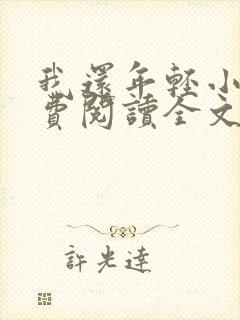 我還年輕小
費閱讀全文
許光達